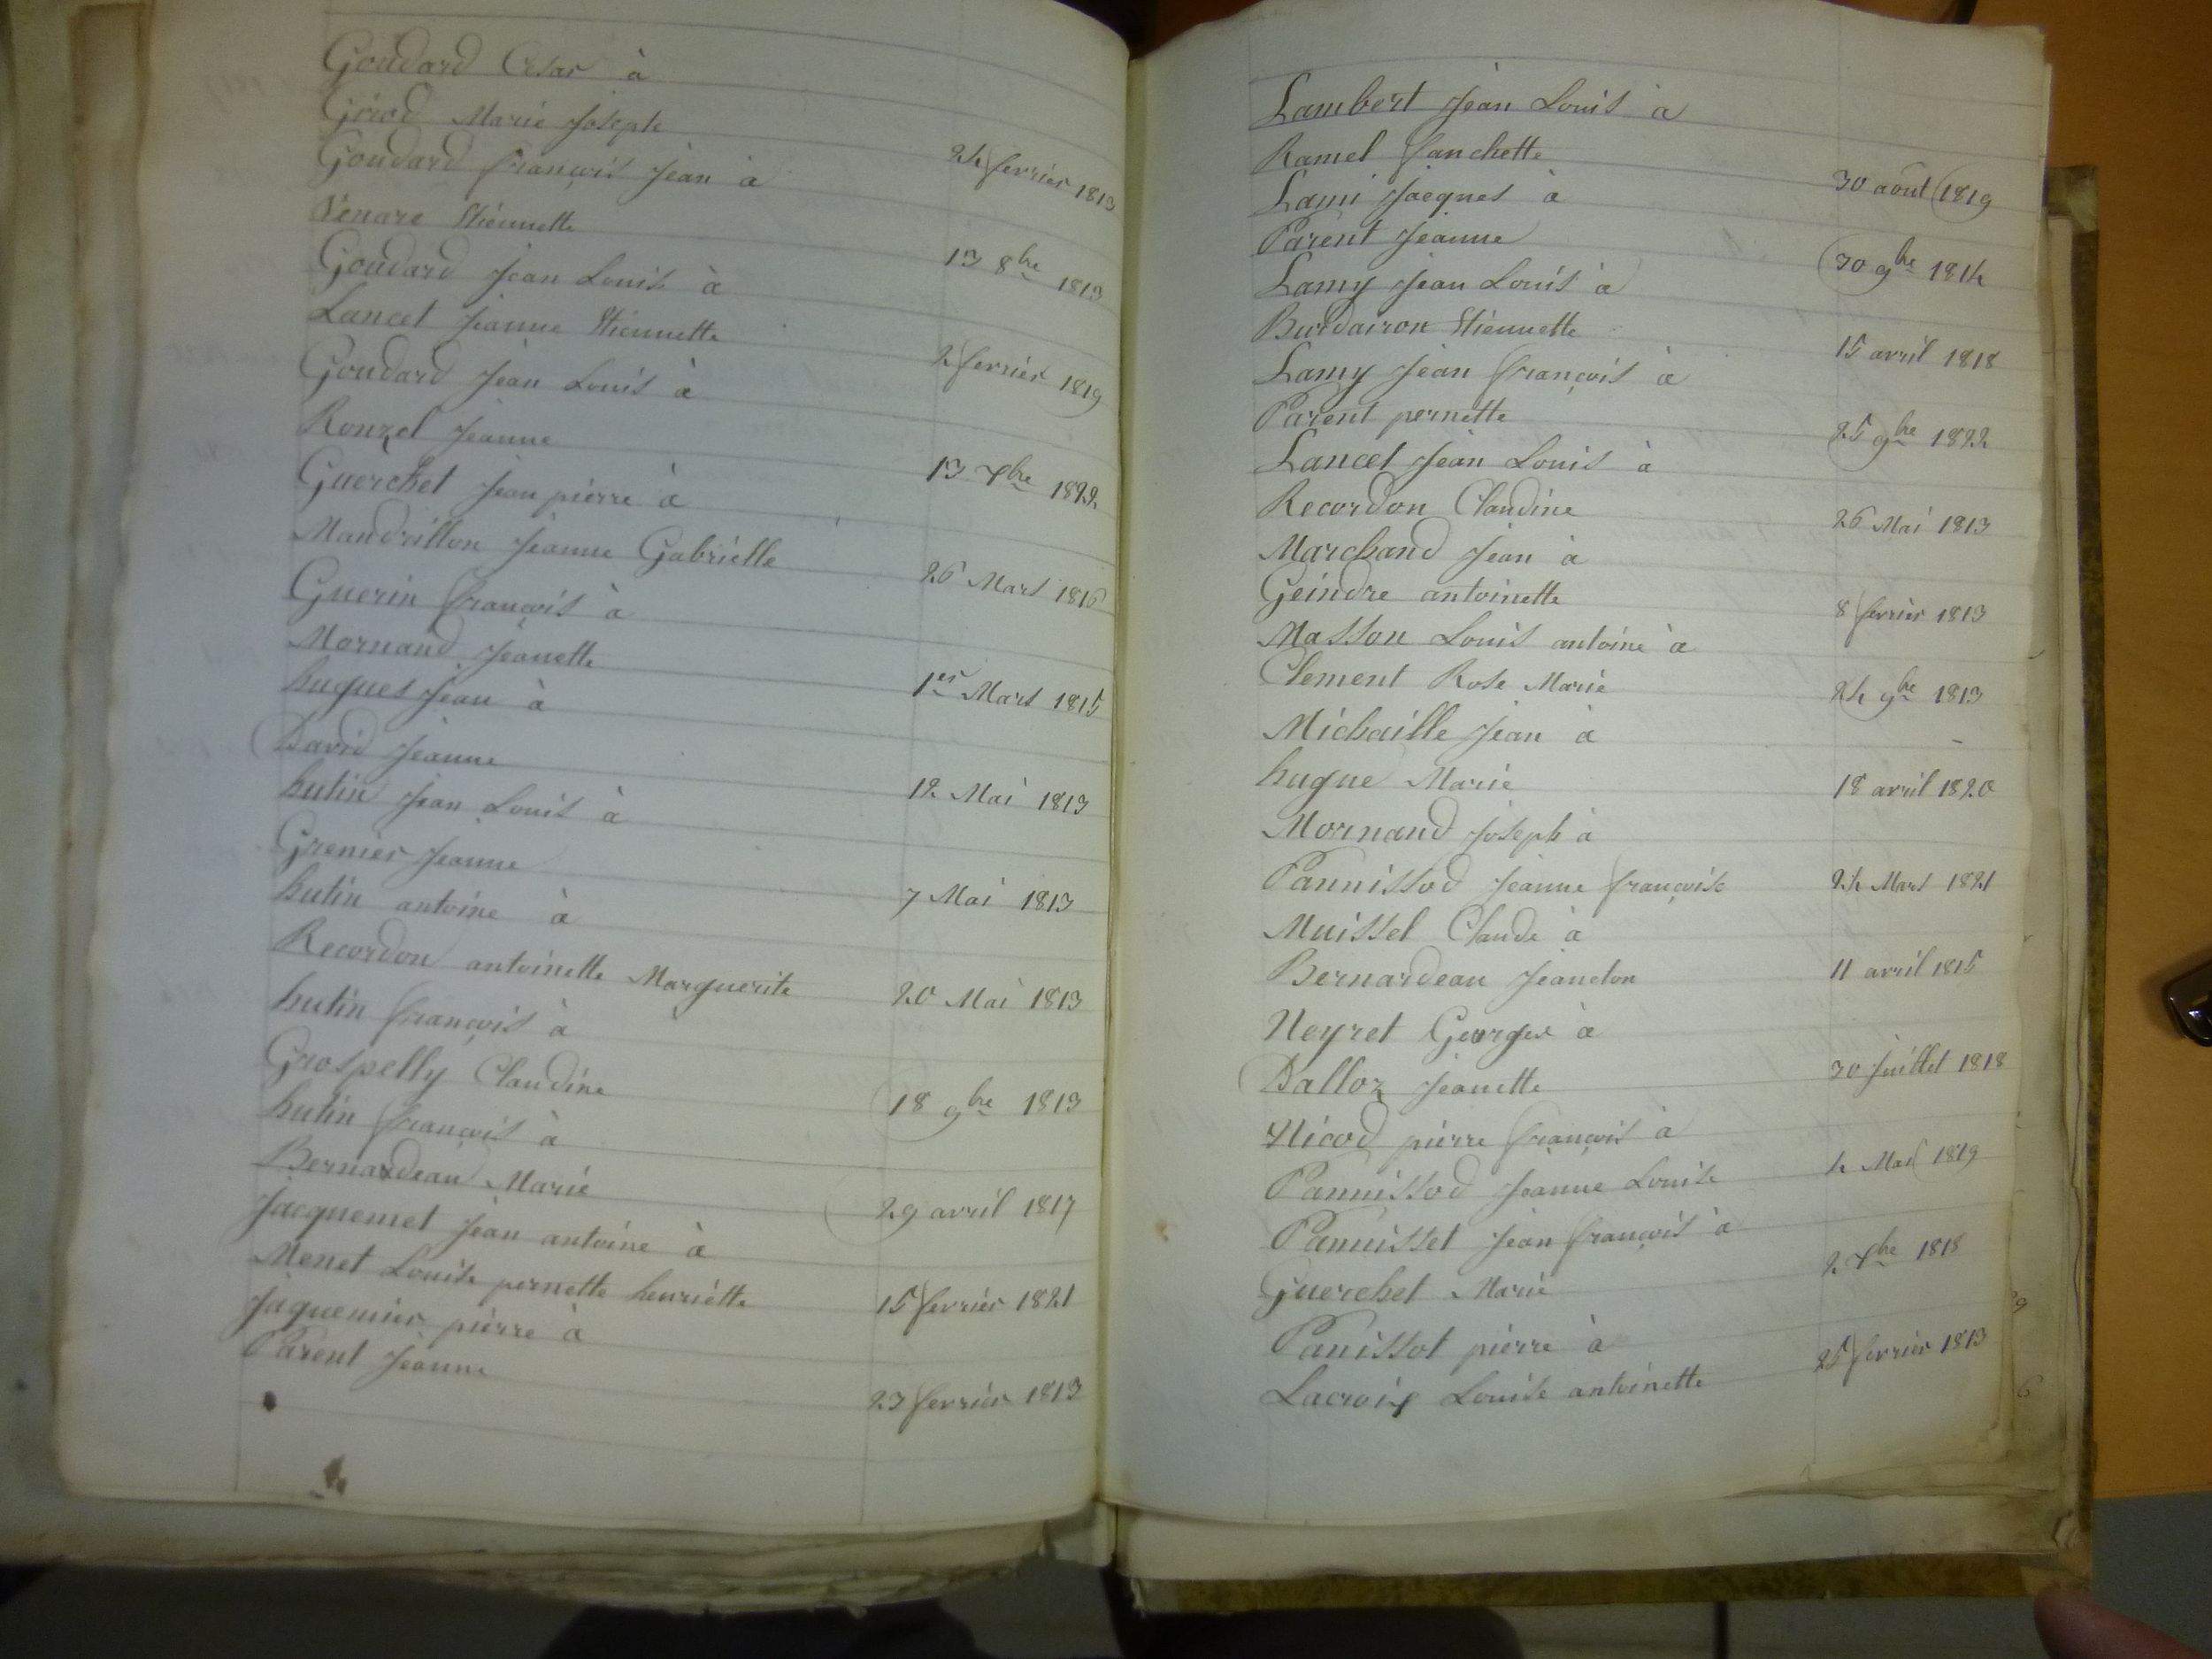 Goudard César à
Girod Marie Joseph
24 fevrier 1813
Goudard françois Jean à
Venare Etiennette
13 8bre 1813
Goudard Jean Louis à
Lancet Jeanne Etiennette
2 fevrier 1819
Goudard Jean Louis à
Rouzel Jeanne
13 7bre 1822
Guerchet Jean pierre à
Mandrillon Jeanne Gabrielle
26 Mars 1816
Guerin françois à
Mornand Jeanette
1er Mars 1815
hugues Jean à
David Jeanne
12 Mai 1813
hutin Jean Louis à
Grenier Jeanne
7 Mai 1813
hutin antoine à
Recordon antoinette Marguerite
20 Mai 1813
hutin françois à
Grospelly Claudine
18 9bre 1813
hutin françois à
Bernardeau Marie
29 avril 1817
Jacquemet Jean antoine à
Menet Louise pernette henriette
15 fevrier 1821
Jaquemier pierre à
Parent Jeanne
23 fevrier 1813
Lambert Jean Louis à
Ramel fanchette
30 aout 1819
Lami Jacques à
Parent Jeanne
30 9bre 1814
Lamy Jean Louis à
Burdairon Etiennette
15 avril 1818
Lamy Jean françois à
Parent pernette
25 9bre 1822
Lancet Jean Louis à
Recordon Claudine
26 Mai 1813
Marchand Jean à
Geindre antoinette
8 fevrier 1813
Masson Louis antoine à
Clement Rose Marie
24 9bre 1813
Michaille Jean à
hugue Marie
18 avril 1820
Mornand Joseph à
Pannissod Jeanne françoise
24 Mars 1821
Muissel Claude à
Bernardeau Jeandon
11 avril 1815
Neyret Georges à
Dalloz Jeanette
30 Juillet 1818
Nicod pierre françois à
Pannissod Jeanne Louise
4 Mai 1819
Pannisset Jean françois à
Guerchet Marie
2 7bre 1818
Panissot pierre à
Lacroix Louise antoinette
25 fevrier 1813